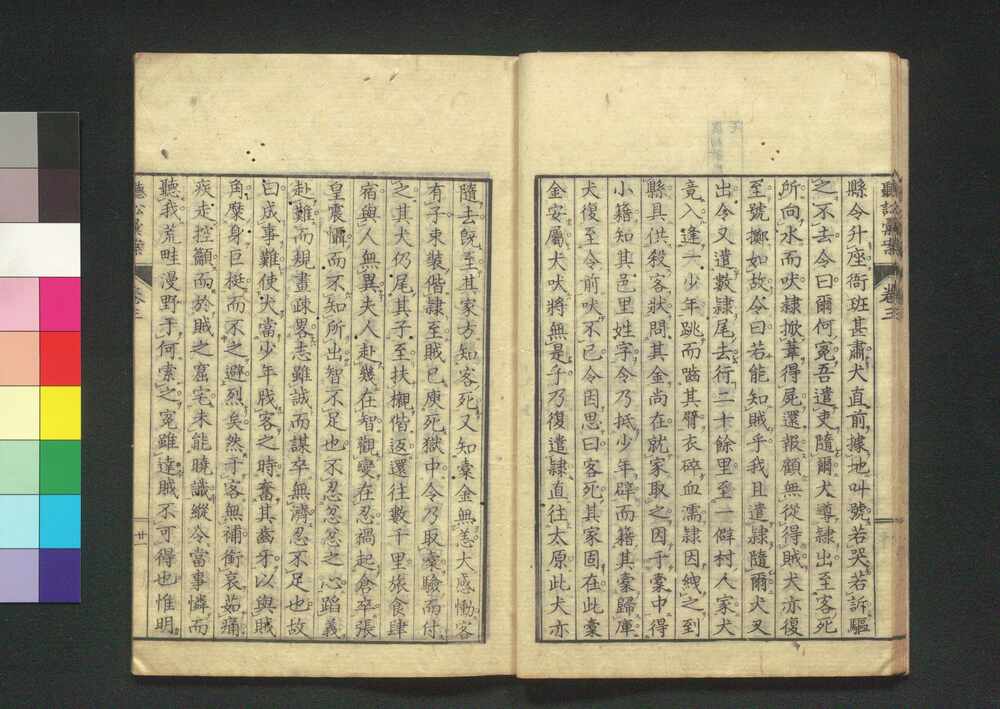 縣令升座衙班甚肅犬直前據地叫號若哭若訴驅
之不去令曰爾何冤吾遣吏隨爾犬導隸出至客死
所向水而吠隸掀葦得屍還報顧無從得賊犬亦復
至號擲如故令曰若能知賊乎我且遣隸隨爾犬又
出令又遣數隸尾去行二十餘里至一僻村人家犬
竟入逢一少年跳而嚙其臂衣碎血濡隸因紲之到
縣具供殺客狀問其金尚在就家取之因于橐中得
小籍知其邑里姓字令乃抵少年辟而籍其橐歸庫
犬復至令前吠不已令因思曰客死其家固在此橐
金安屬犬吠將無是乎乃復遣隸直往太原此犬亦
隨去既至其家方知客死又知橐金無恙大感慟客
有子束裝偕隸至賊已庾死獄中令乃取橐驗而付
之其犬仍尾其子至扶櫬偕返還往數千里旅食肆
宿與人無異夫人赴幾在智觀變在忍禍起倉卒張
皇震懾而不知所出智不足也不忍忿忿之心蹈義
赴難而規畫疎畧志雖誠而謀卒無濟忍不足也故
曰成事難使犬當少年戕客之時奮其齒牙以與賊
角糜身巨梃而不之避烈矣然于客無補銜哀茹痛
疾走控籲而於賊之窟宅未能曉識縱令當事憐而
聽我荒畦漫野于何索之冤雖達賊不可得也惟明
卷三
廿一